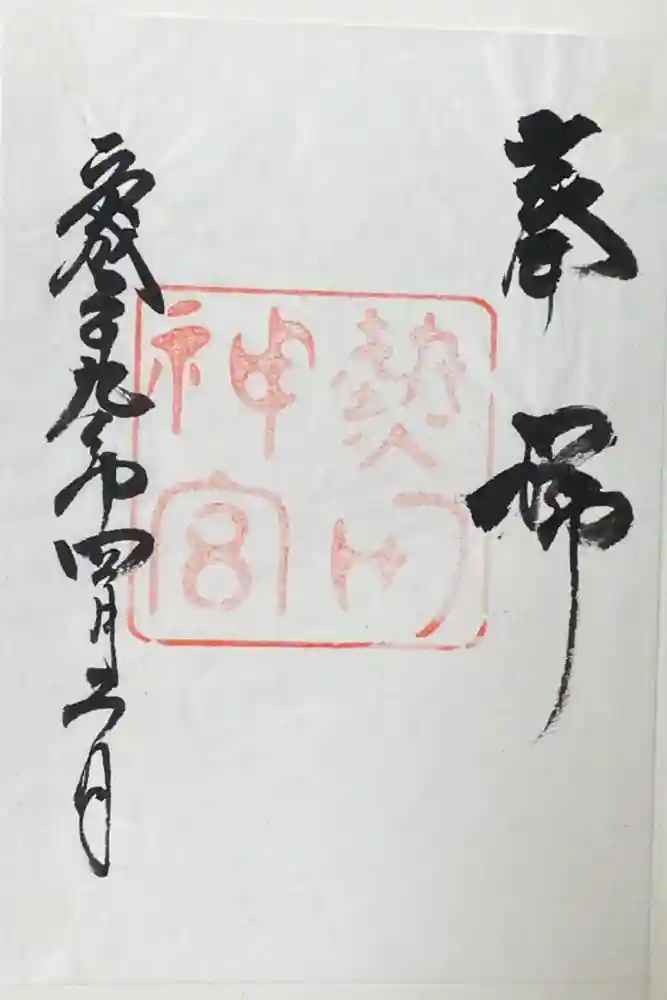 奉拝
熱田
神宮
平成二十九年四月六日